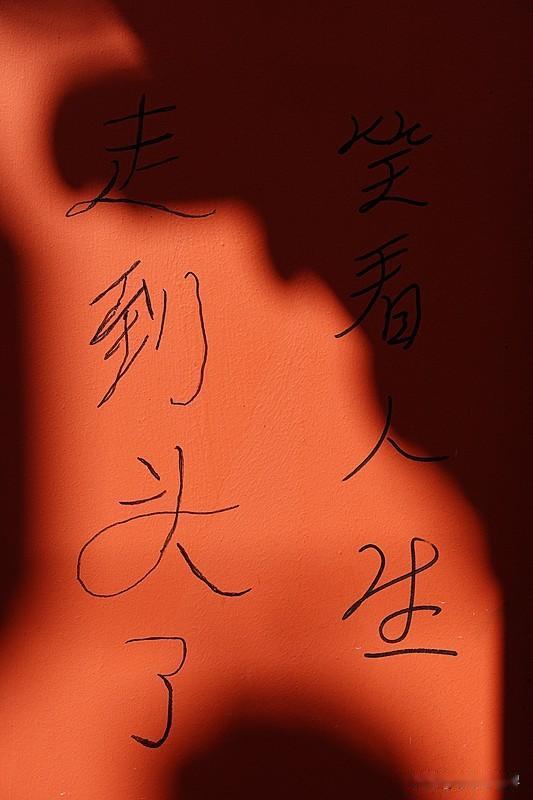 笑看人生
走到头了